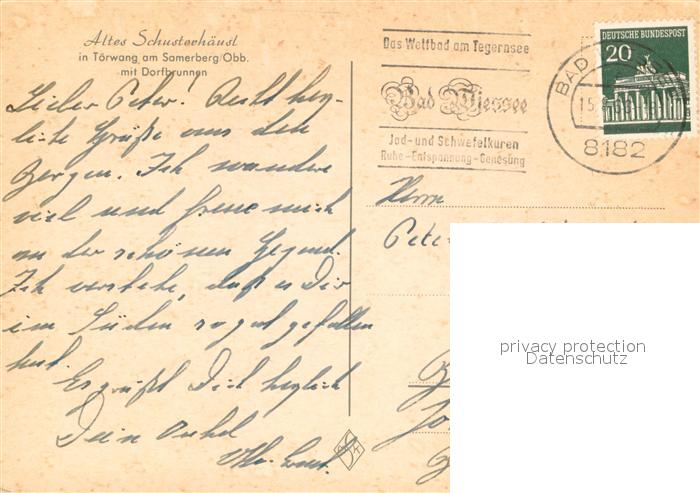 Altes Schusterhäusl
in Törwang am Samerberg/Obb.
mit Dorfbrunnen
Das Weltbad am Tegernsee
Bad Wiessee
Jod- und Schwefelkuren
Ruhe-Entspannung-Genesung
DEUTSCHE BUNDESPOST
20
BAD
15.
8182
Lieber Peter! Recht herz-
liche Grüße aus den
Bergen. Ich wandere
viel und freue mich
an der schönen Gegend.
Ich verstehe, daß es Dir
im Süden so gut gefallen
hat.
Es grüßt Dich herzlich
Dein Onkel
Herrn
Peter
privacy protection
Datenschutz